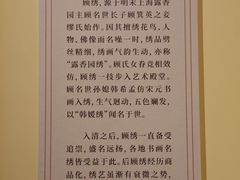 顾绣，源于明末上海露香
园主顾名世长子顾箕英之妾
缪氏始作。因其擅绣花鸟、人
物、佛像而名噪一时，绣品劈
丝精细，绣画气韵生动，亦称
“露香园绣”。顾氏女眷竞相效
仿，顾绣一技步入艺术殿堂。
顾名世孙媳韩希孟仿宋元书
画入绣，生气迴动，五色斓发，
以“韩媛绣”闻名于世。
入清之后，顾绣一直备受
追崇，盛名远扬，各地书画名
绣皆受益于此。后顾绣经历商
品化，绣艺虽渐有衰微之势，